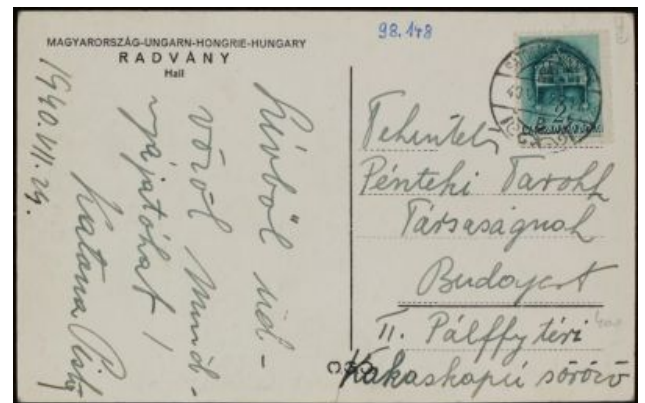 MAGYARORSZÁG-UNGARN-HONGRIE-HUNGARY
RADVÁNY
Hall
98.148
1940.VII.29.
Szívből üd-
vözöl Mind-
nyájatokat!
Katona Pista
Tekintetes
Pénteki Tarokk
Társaságnak
Budapest
II. Pálffy téri
Kakaskapu söröző